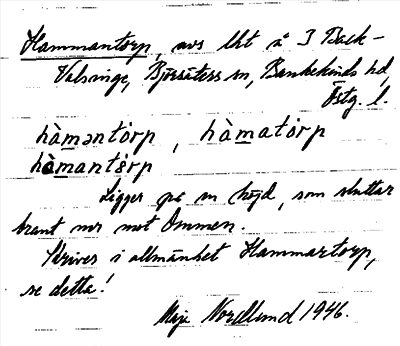 Hammantorp, avs lht å 3 Back-
Valsinge, Björsäters sn, Bankekinds hd,
Östg. l.
hàmantòrp, hàmatòrp
hàmantòrp
Ligger på en höjd, som sluttar
brant ner mot Ommen.
Skrives i allmänhet Hammartorp,
se detta!
Maja Nordlund 1946.